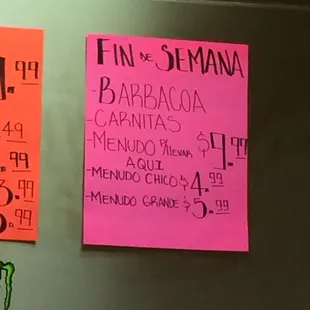 FIN DE SEMANA
-BARBACOA
-CARNITAS
-MENUDO P/LLEVAR $9.99
AQUI
-MENUDO CHICO $4.99
-MENUDO GRANDE $5.99
.99
49
.99
3.99
.99